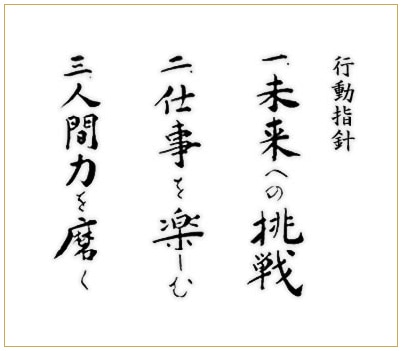 行動指針
一、未来への挑戦
二、仕事を楽しむ
三、人間力を磨く